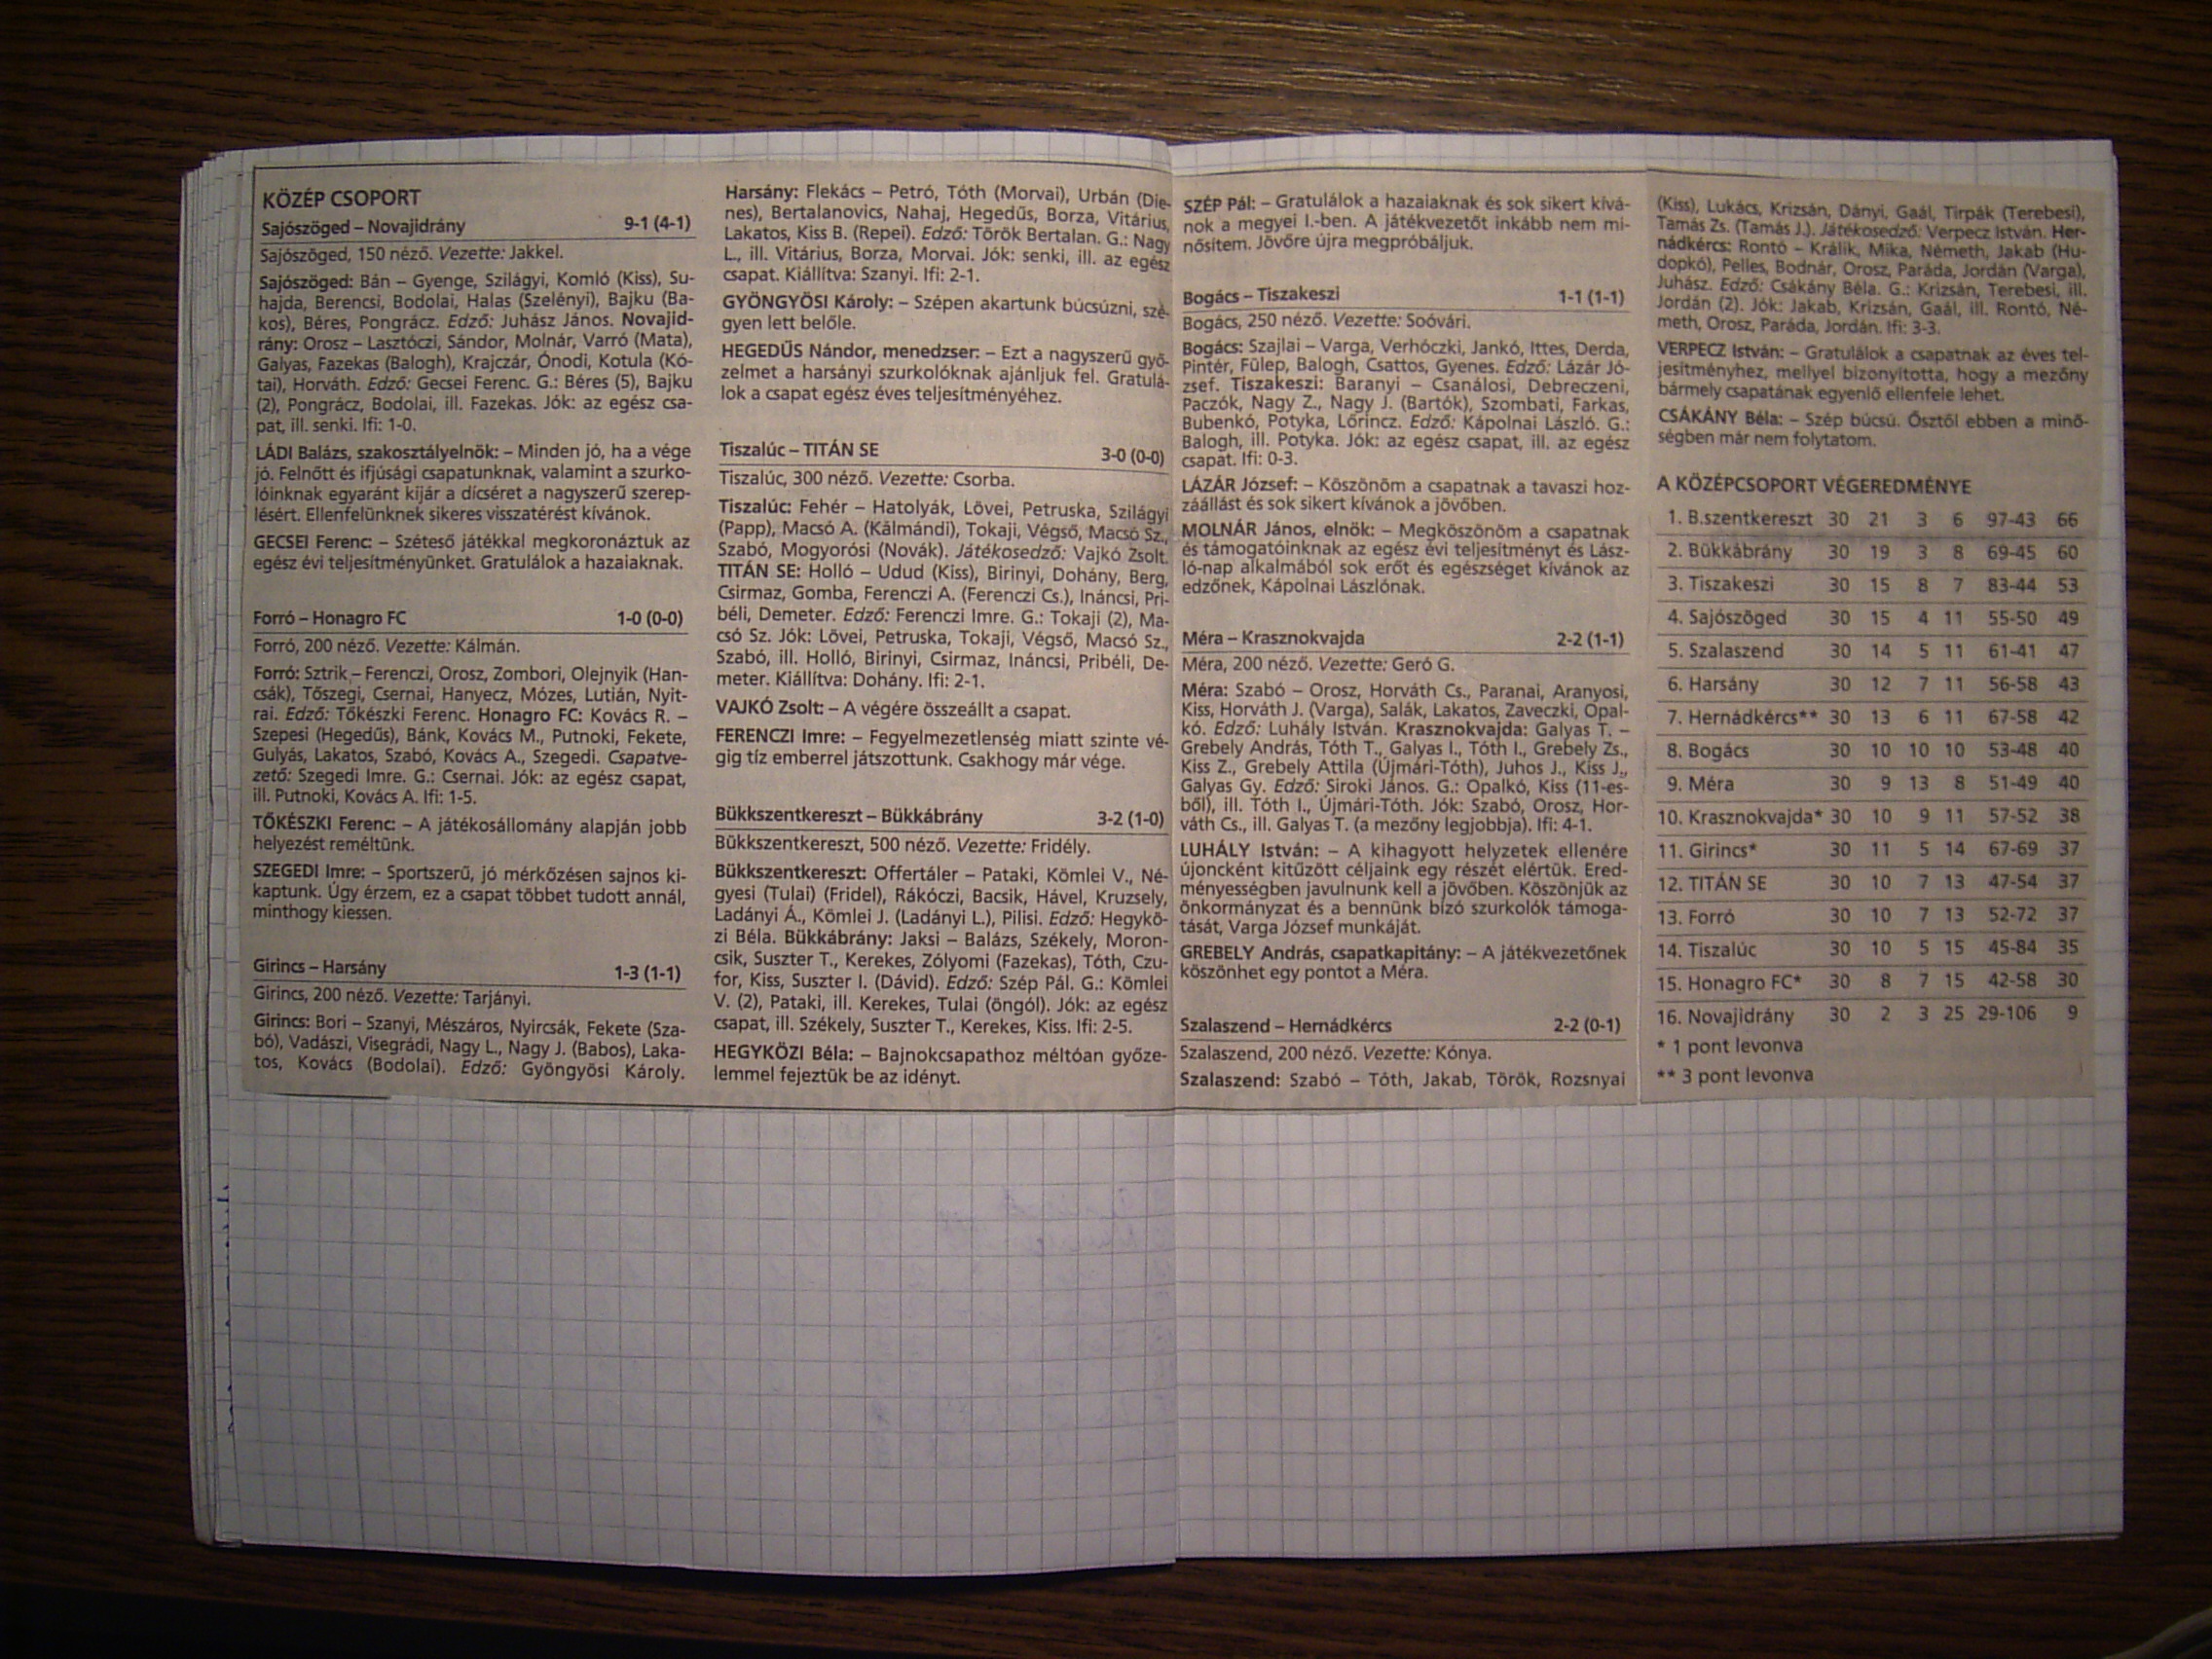 KÖZÉP CSOPORT
Sajószöged – Novajidrány 9-1 (4-1)
Sajószöged, 150 néző. Vezette: Jakkel.
Sajószöged: Bán – Gyenge, Szilágyi, Komló (Kiss), Su-
hajda, Berencsi, Bodolai, Halas (Szelényi), Bajku (Ba-
kos), Béres, Pongrácz. Edző: Juhász János. Novajid-
rány: Orosz – Lasztóczi, Sándor, Molnár, Varró (Mata),
Galyas, Fazekas (Balogh), Krajczár, Ónodi, Kotula (Kó-
tai), Horváth. Edző: Gecsei Ferenc. G.: Béres (5), Bajku
(2), Pongrácz, Bodolai, ill. Fazekas. Jók: az egész csa-
pat, ill. senki. Ifi: 1-0.
LÁDI Balázs, szakosztályelnök: – Minden jó, ha a vége
jó. Felnőtt és ifjúsági csapatunknak, valamint a szurko-
lóinknak egyaránt kijár a dícséret a nagyszerű szerep-
lésért. Ellenfelünknek sikeres visszatérést kívánok.
GECSEI Ferenc: – Széteső játékkal megkoronáztuk az
egész évi teljesítményünket. Gratulálok a hazaiaknak.
Forró – Honagro FC 1-0 (0-0)
Forró, 200 néző. Vezette: Kálmán.
Forró: Sztrik – Ferenczi, Orosz, Zombori, Olejnyik (Han-
csák), Tőszegi, Csernai, Hanyecz, Mózes, Lutián, Nyit-
rai. Edző: Tőkészki Ferenc. Honagro FC: Kovács R. –
Szepesi (Hegedűs), Bánk, Kovács M., Putnoki, Fekete,
Gulyás, Lakatos, Szabó, Kovács A., Szegedi. Csapatve-
zető: Szegedi Imre. G.: Csernai. Jók: az egész csapat,
ill. Putnoki, Kovács A. Ifi: 1-5.
TŐKÉSZKI Ferenc: – A játékosállomány alapján jobb
helyezést reméltünk.
SZEGEDI Imre: – Sportszerű, jó mérkőzésen sajnos ki-
kaptunk. Úgy érzem, ez a csapat többet tudott annál,
minthogy kiessen.
Girincs – Harsány 1-3 (1-1)
Girincs, 200 néző. Vezette: Tarjányi.
Girincs: Bori – Szanyi, Mészáros, Nyircsák, Fekete (Sza-
bó), Vadászi, Visegrádi, Nagy L., Nagy J. (Babos), Laka-
tos, Kovács (Bodolai). Edző: Gyöngyösi Károly.
Harsány: Flekács – Petró, Tóth (Morvai), Urbán (Die-
nes), Bertalanovics, Nahaj, Hegedűs, Borza, Vitárius,
Lakatos, Kiss B. (Repei). Edző: Török Bertalan. G.: Nagy
L., ill. Vitárius, Borza, Morvai. Jók: senki, ill. az egész
csapat. Kiállítva: Szanyi. Ifi: 2-1.
GYÖNGYÖSI Károly: – Szépen akartunk búcsúzni, szé-
gyen lett belőle.
HEGEDŰS Nándor, menedzser: – Ezt a nagyszerű győ-
zelmet a harsányi szurkolóknak ajánljuk fel. Gratulá-
lok a csapat egész éves teljesítményéhez.
Tiszalúc – TITÁN SE 3-0 (0-0)
Tiszalúc, 300 néző. Vezette: Csorba.
Tiszalúc: Fehér – Hatolyák, Lövei, Petruska, Szilágyi
(Papp), Macsó A. (Kálmándi), Tokaji, Végső, Macsó Sz.,
Szabó, Mogyorósi (Novák). Játékosedző: Vajkó Zsolt.
TITÁN SE: Holló – Udud (Kiss), Birinyi, Dohány, Berg,
Csirmaz, Gomba, Ferenczi A. (Ferenczi Cs.), Ináncsi, Pri-
béli, Demeter. Edző: Ferenczi Imre. G.: Tokaji (2), Ma-
csó Sz. Jók: Lövei, Petruska, Tokaji, Végső, Macsó Sz.,
Szabó, ill. Holló, Birinyi, Csirmaz, Ináncsi, Pribéli, De-
meter. Kiállítva: Dohány. Ifi: 2-1.
VAJKÓ Zsolt: – A végére összeállt a csapat.
FERENCZI Imre: – Fegyelmezetlenség miatt szinte vé-
gig tíz emberrel játszottunk. Csakhogy már vége.
Bükkszentkereszt – Bükkábrány 3-2 (1-0)
Bükkszentkereszt, 500 néző. Vezette: Fridély.
Bükkszentkereszt: Offertáler – Pataki, Kömlei V., Né-
gyesi (Tulai) (Fridel), Rákóczi, Bacsik, Hável, Kruzsely,
Ladányi Á., Kömlei J. (Ladányi L.), Pilisi. Edző: Hegykö-
zi Béla. Bükkábrány: Jaksi – Balázs, Székely, Moron-
csik, Suszter T., Kerekes, Zólyomi (Fazekas), Tóth, Czu-
for, Kiss, Suszter I. (Dávid). Edző: Szép Pál. G.: Kömlei
V. (2), Pataki, ill. Kerekes, Tulai (öngól). Jók: az egész
csapat, ill. Székely, Suszter T., Kerekes, Kiss. Ifi: 2-5.
HEGYKÖZI Béla: – Bajnokcsapathoz méltóan győze-
lemmel fejeztük be az idényt.
SZÉP Pál: – Gratulálok a hazaiaknak és sok sikert kívá-
nok a megyei I.-ben. A játékvezetőt inkább nem mi-
nősítem. Jövőre újra megpróbáljuk.
Bogács – Tiszakeszi 1-1 (1-1)
Bogács, 250 néző. Vezette: Soóvári.
Bogács: Szajlai – Varga, Verhóczki, Jankó, Ittes, Derda,
Pintér, Fülep, Balogh, Csattos, Gyenes. Edző: Lázár Jó-
zsef. Tiszakeszi: Baranyi – Csanálosi, Debreczeni,
Paczók, Nagy Z., Nagy J. (Bartók), Szombati, Farkas,
Bubenkó, Potyka, Lőrincz. Edző: Kápolnai László. G.:
Balogh, ill. Potyka. Jók: az egész csapat, ill. az egész
csapat. Ifi: 0-3.
LÁZÁR József: – Köszönöm a csapatnak a tavaszi hoz-
záállást és sok sikert kívánok a jövőben.
MOLNÁR János, elnök: – Megköszönöm a csapatnak
és támogatóinknak az egész évi teljesítményt és Lász-
ló-nap alkalmából sok erőt és egészséget kívánok az
edzőnek, Kápolnai Lászlónak.
Méra – Krasznokvajda 2-2 (1-1)
Méra, 200 néző. Vezette: Geró G.
Méra: Szabó – Orosz, Horváth Cs., Paranai, Aranyosi,
Kiss, Horváth J. (Varga), Salák, Lakatos, Zaveczki, Opal-
kó. Edző: Luhály István. Krasznokvajda: Galyas T. –
Grebely András, Tóth T., Galyas I., Tóth I., Grebely Zs.,
Kiss Z., Grebely Attila (Újmári-Tóth), Juhos J., Kiss J.,
Galyas Gy. Edző: Siroki János. G.: Opalkó, Kiss (11-es-
ből), ill. Tóth I., Újmári-Tóth. Jók: Szabó, Orosz, Hor-
váth Cs., ill. Galyas T. (a mezőny legjobbja). Ifi: 4-1.
LUHÁLY István: – A kihagyott helyzetek ellenére
újoncként kitűzött céljaink egy részét elértük. Ered-
ményességben javulnunk kell a jövőben. Köszönjük az
önkormányzat és a bennünk bízó szurkolók támoga-
tását, Varga József munkáját.
GREBELY András, csapatkapitány: – A játékvezetőnek
köszönhet egy pontot a Méra.
Szalaszend – Hernádkércs 2-2 (0-1)
Szalaszend, 200 néző. Vezette: Kónya.
Szalaszend: Szabó – Tóth, Jakab, Török, Rozsnyai
(Kiss), Lukács, Krizsán, Dányi, Gaál, Tirpák (Terebesi),
Tamás Zs. (Tamás J.). Játékosedző: Verpecz István. Her-
nádkércs: Rontó – Králik, Mika, Németh, Jakab (Hu-
dopkó), Pelles, Bodnár, Orosz, Paráda, Jordán (Varga),
Juhász. Edző: Csákány Béla. G.: Krizsán, Terebesi, ill.
Jordán (2). Jók: Jakab, Krizsán, Gaál, ill. Rontó, Né-
meth, Orosz, Paráda, Jordán. Ifi: 3-3.
VERPECZ István: – Gratulálok a csapatnak az éves tel-
jesítményhez, mellyel bizonyította, hogy a mezőny
bármely csapatának egyenlő ellenfele lehet.
CSÁKÁNY Béla: – Szép búcsú. Ősztől ebben a minő-
ségben már nem folytatom.
A KÖZÉPCSOPORT VÉGEREDMÉNYE
1. B.szentkereszt 30 21 3 6 97-43 66
2. Bükkábrány 30 19 3 8 69-45 60
3. Tiszakeszi 30 15 8 7 83-44 53
4. Sajószöged 30 15 4 11 55-50 49
5. Szalaszend 30 14 5 11 61-41 47
6. Harsány 30 12 7 11 56-58 43
7. Hernádkércs** 30 13 6 11 67-58 42
8. Bogács 30 10 10 10 53-48 40
9. Méra 30 9 13 8 51-49 40
10. Krasznokvajda* 30 10 9 11 57-52 38
11. Girincs* 30 11 5 14 67-69 37
12. TITÁN SE 30 10 7 13 47-54 37
13. Forró 30 10 7 13 52-72 37
14. Tiszalúc 30 10 5 15 45-84 35
15. Honagro FC* 30 8 7 15 42-58 30
16. Novajidrány 30 2 3 25 29-106 9
* 1 pont levonva
** 3 pont levonva